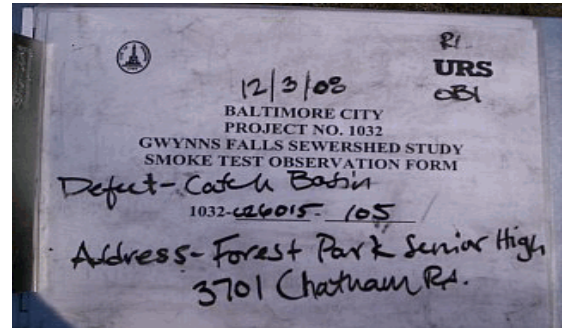 R1
URS
12/3/08
OB1
BALTIMORE CITY
PROJECT NO. 1032
GWYNNS FALLS SEWERSHED STUDY
SMOKE TEST OBSERVATION FORM
Defect-Catch Basin
1032-C26015-105
Address-Forest Park Senior High
3701 Chatham Rd.